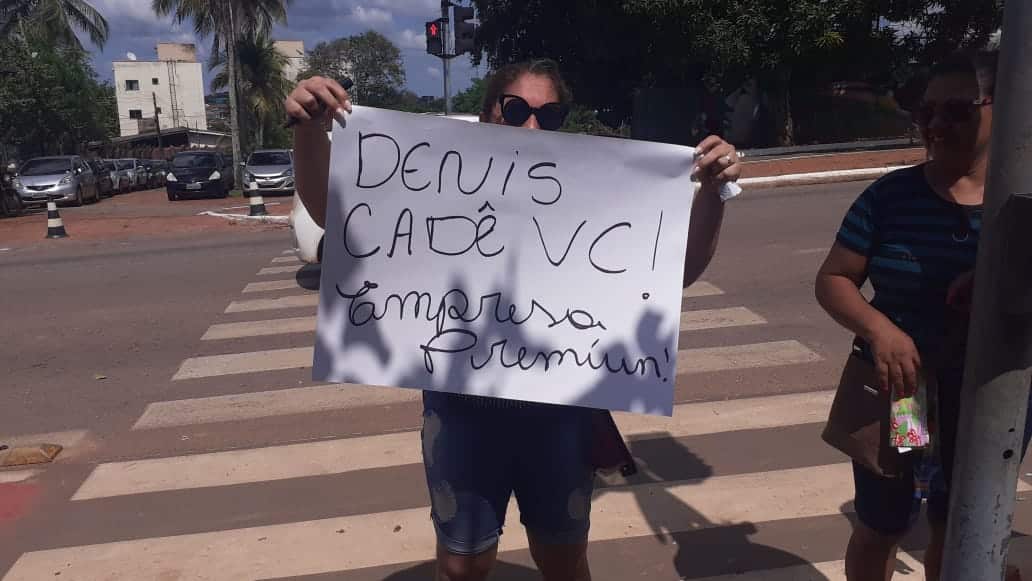 DENIS
CADÊ VC!
Empresa
Premíun!